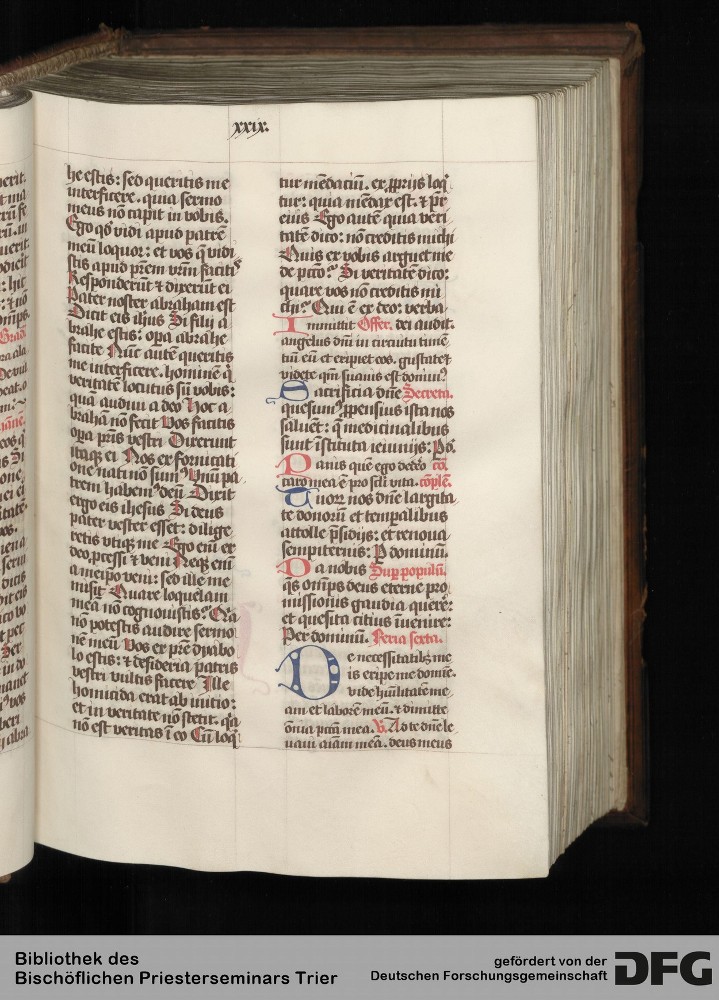 xxix.
he estis: sed queritis me
interficere. quia sermo
meus nō capit in vobis.
Ego qd̕ vidi apud patrē
meū loquor: et vos q̄ vidi
stis apud p̄rem vr̄m facitis
Responderūt & dixerūt ei
Pater noster abraham est
Dicit eis ih̄us Si filij a
brahe estis: opa abrahe
facite Nūc autē queritis
me interficere. hominē q̄
veritatē locutus sū vobis:
quā audiui a deo Hoc a
brahā nō fecit Vos facitis
opa p̄ris vestri Dixerunt
itaq; ei Nos ex fornicati
one nati nō sum⁹ Vnū pa
trem habem⁹ deū Dixit
ergo eis ihesus Si deus
pater vester esset: dilige
retis vtiq; me Ego eni ex
deo processi & veni Neq; eni
a meipo veni: sed ille me
misit Quare loquelam
meā nō cognouistis? Q̄a
nō potestis audire sermo
nē meū Vos ex pr̄e dyabo
lo estis: & desideria patris
vestri vultis facere Ille
homicida erat ab initio:
et in veritate nō stetit. q̄a
nō est veritas ī eo Cū loq̄
tur mēdaciū. ex p̄prijs loq̄
tur: quia mēdax est. & pr̄
eius Ego autē quia veri
tatē dico: nō creditis michi
Quis ex vobis arguet me
de pc̄co? Si veritatē dico:
quare vos nō creditis mi
chi? Qui ē ex deo: verba
Immittit Offer. dei audit.
angelus dn̄i in circuitu timē
tiū eū et eripiet eos. gustate &
videte qm̄ suauis est domin⁹
Sacrificia dn̄e Secreta.
quesum⁹ p̄pensius ista nos
saluēt: q̄ medicinalibus
sunt īstituta ieiunijs: Pō.
Panis quē ego dedero cō.
caro mea ē pro sc̄li vita. cōplē.
Tuoꝝ nos dn̄e largita
te donoꝝ et tempalibus
attolle p̄sidijs: et renoua
sempiternis: P dominū.
Da nobis Sup populū.
q̄s om̄ps deus eterne pro
missionis gaudia querē:
et quesita citius inuenire:
Per dominū. Feria sexta.
De necessitatibꝫ me
is eripe me domīe.
vide hūilitatē me
am et laborē meū. & dimitte
om̄ia pc̄cā mea. V. Ad te dn̄e le
uaui aīam meā. deus meus
Bibliothek des
Bischöflichen Priesterseminars Trier
gefördert von der
Deutschen Forschungsgemeinschaft
DFG